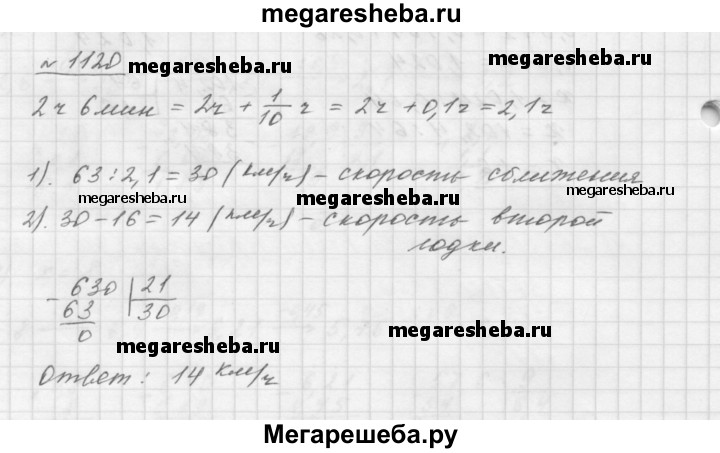 megaresheba.ru
№ 1120
megaresheba.ru
megaresheba.ru
2ч 6мин = 2ч + 1/10 ч = 2ч + 0,1ч = 2,1ч
1). 63 : 2,1 = 30 (км/ч) – скорость сближения
megaresheba.ru
megaresheba.ru
megaresheba.ru
2). 30 – 16 = 14 (км/ч) – скорость второй
лодки.
630 | 21
63 30
0
megaresheba.ru
megaresheba.ru
Ответ: 14 км/ч
megaresheba.ru
Мегарешеба.ру